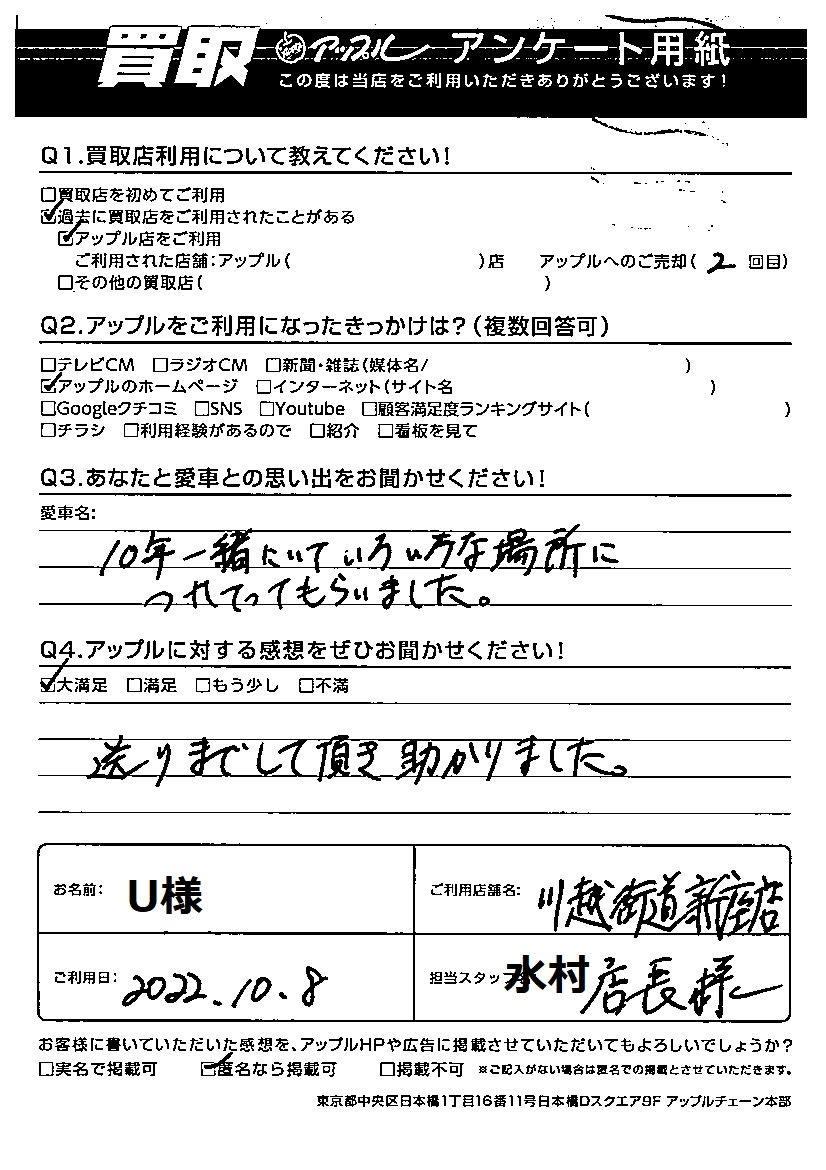 買取 アップル アンケート用紙
この度は当店をご利用いただきありがとうございます!
Q1.買取店利用について教えてください!
□買取店を初めてご利用
☑過去に買取店をご利用されたことがある
☑アップル店をご利用
ご利用された店舗:アップル( )店 アップルへのご売却( 2 回目)
□その他の買取店( )
Q2.アップルをご利用になったきっかけは?(複数回答可)
□テレビCM □ラジオCM □新聞・雑誌(媒体名/ )
☑アップルのホームページ □インターネット(サイト名 )
□Googleクチコミ □SNS □Youtube □顧客満足度ランキングサイト( )
□チラシ □利用経験があるので □紹介 □看板を見て
Q3.あなたと愛車との思い出をお聞かせください!
愛車名:
10年一緒にいていろいろな場所に
つれてってもらいました。
Q4.アップルに対する感想をぜひお聞かせください!
☑大満足 □満足 □もう少し □不満
送りまでして頂き助かりました。
お名前: U様 ご利用店舗名: 川越街道新座店
ご利用日: 2022.10.8 担当スタッフ 水村店長様
お客様に書いていただいた感想を、アップルHPや広告に掲載させていただいてもよろしいでしょうか?
□実名で掲載可 ☑匿名なら掲載可 □掲載不可 ※ご記入がない場合は匿名での掲載とさせていただきます。
東京都中央区日本橋1丁目16番11号日本橋Dスクエア9F アップルチェーン本部